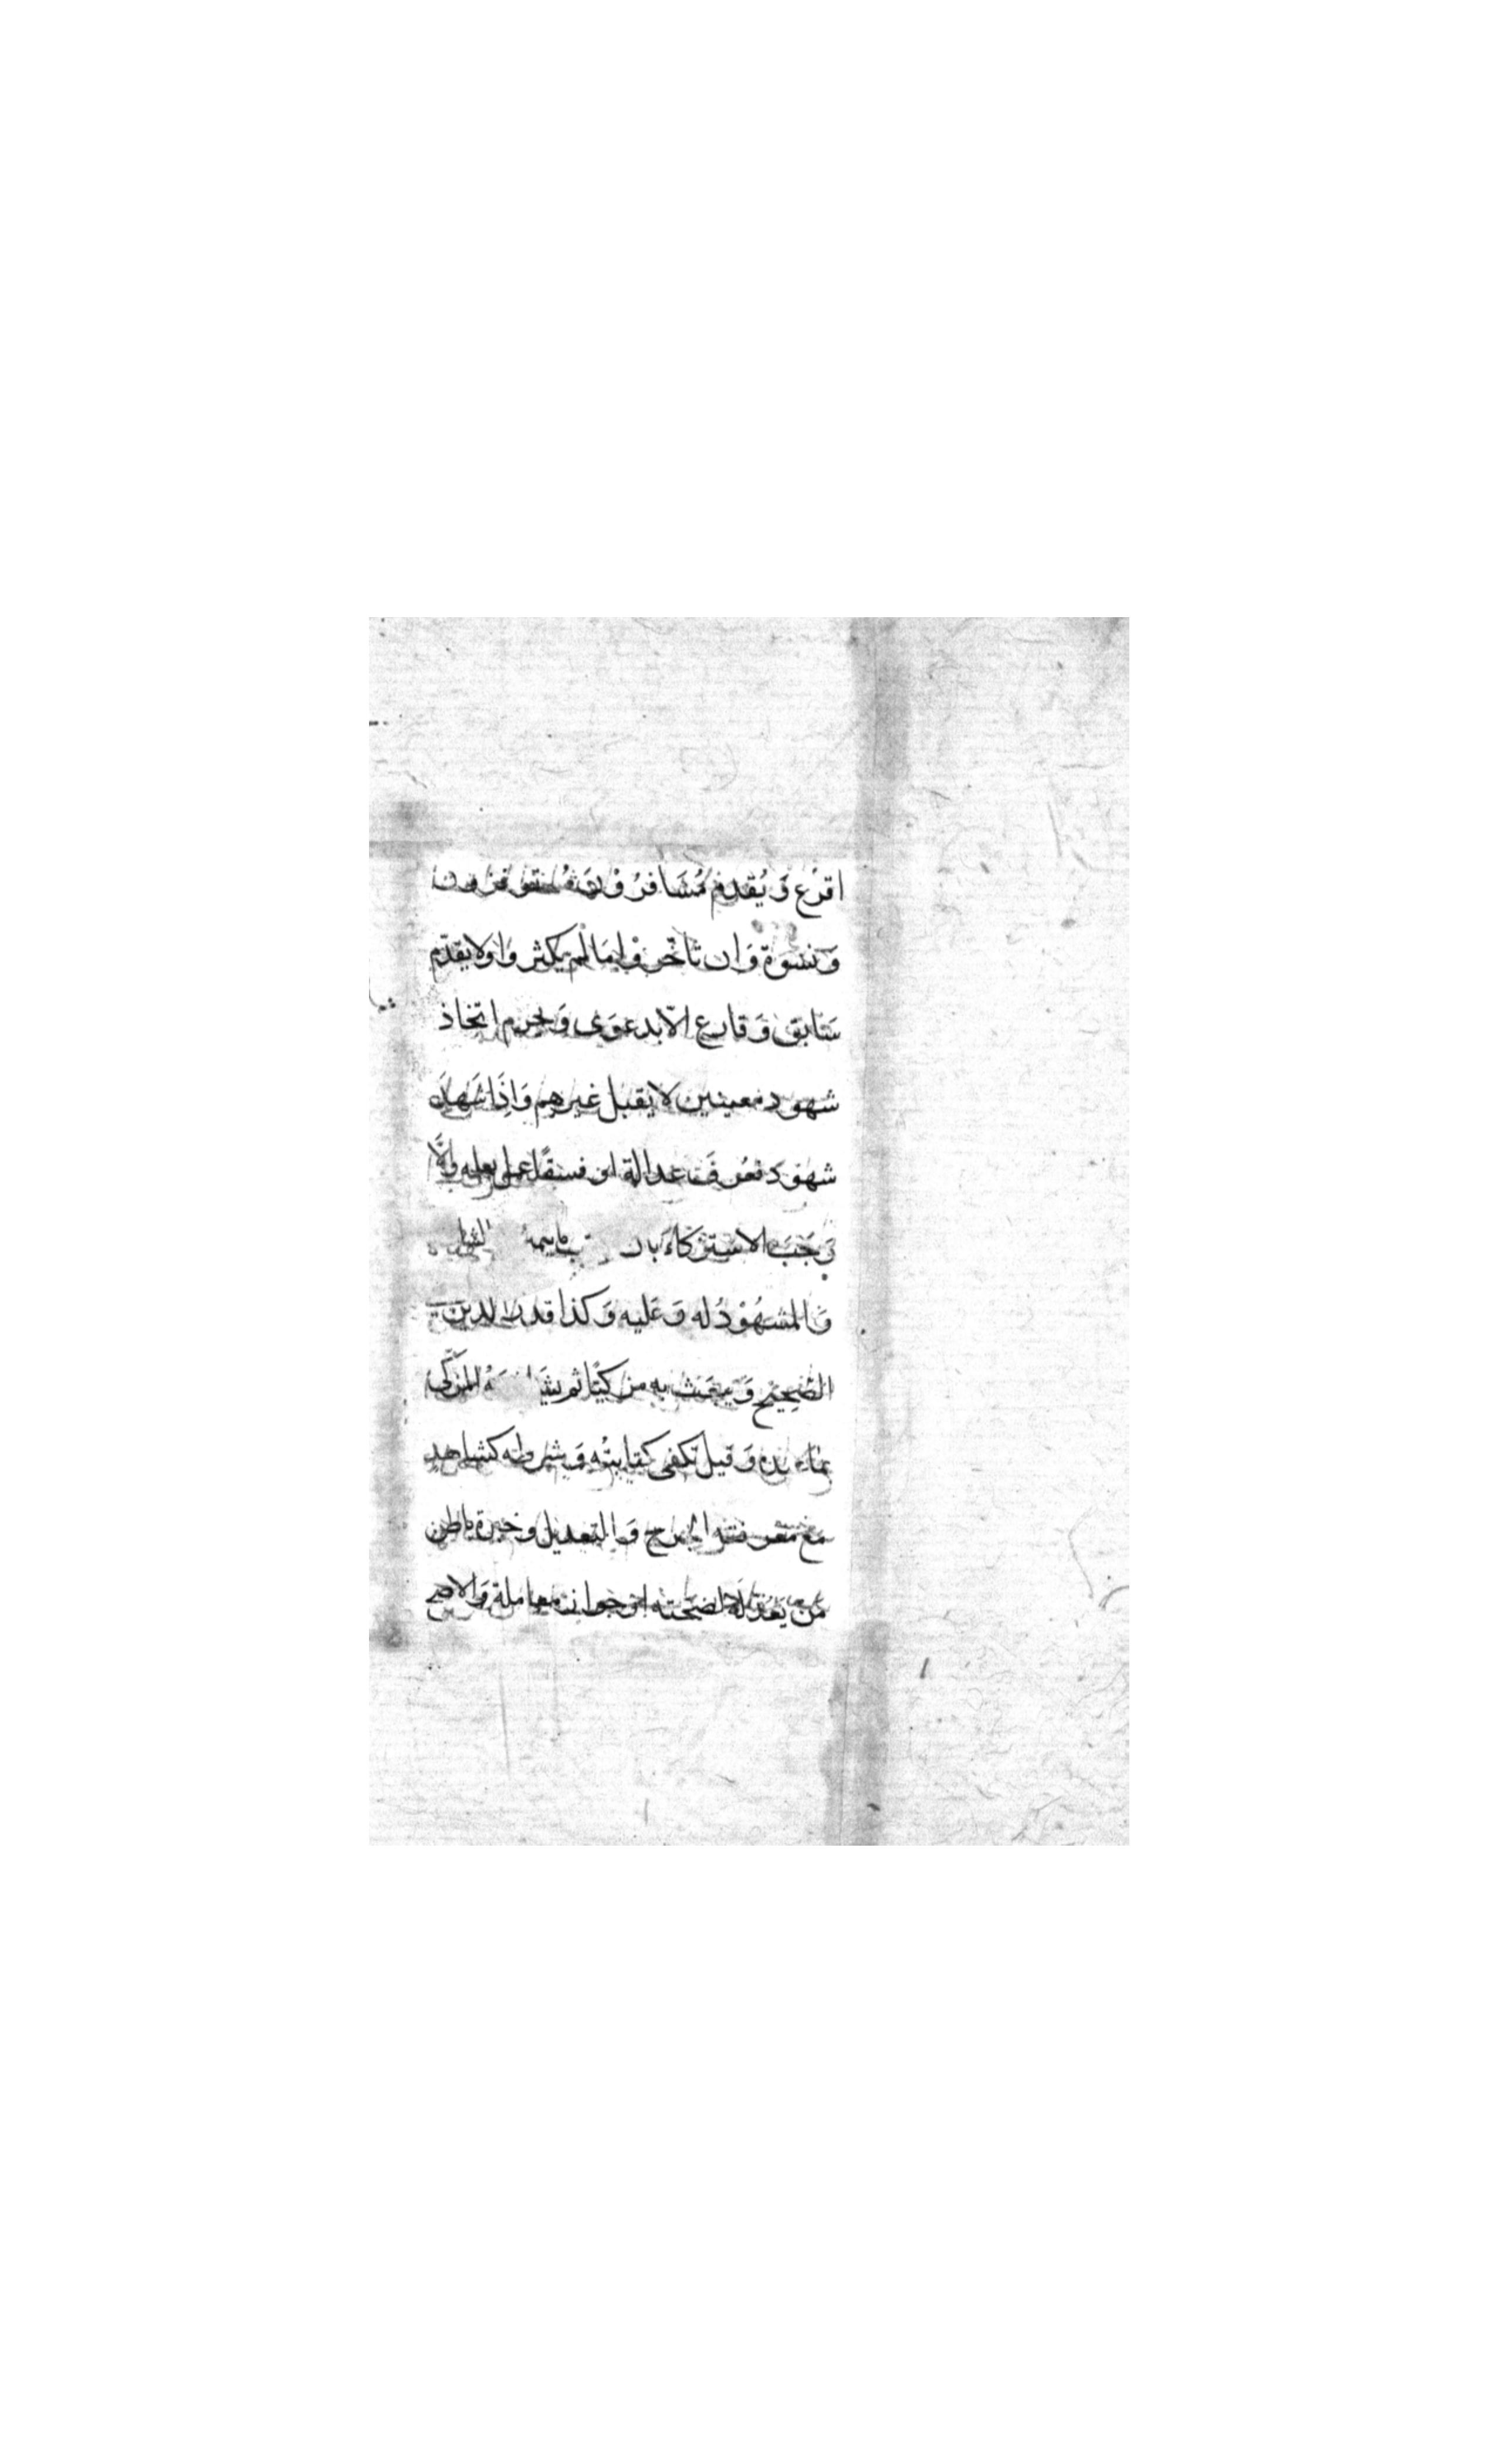 اقرع وَيُقدم مُسَافرُوْن مُستوفزون
وَنسْوَة وَان تاخّروْا مَا لم يكثروْا وَلا يقدّم
سَابق وَقارع الّا بدعوَى وَيحرم اتخاذ
شهود معينين لا يقبل غيرهم وَاِذَا شَهدَ
شهوْد فعرفَ عدالة اوْ فسقًا عمل بعلمه وَالّا
وَجَبَ الاسْتزكاء بان باسمه الشاهد
وَالمشهُوْد له وَعَليه وَكذا قدر الدين
الصَّحِيْح وَيبعَث به مزكيًا ثم المزكّى
بما عنده وَقيل تكفى كتابتْه وَشرطه كشاهدٍ
مَع معرفته الجرح وَالتعديل وخبرة باطن
مَن يَعُدّله لصحبَته اوْ جوار اوْ معاملة وَالاصح